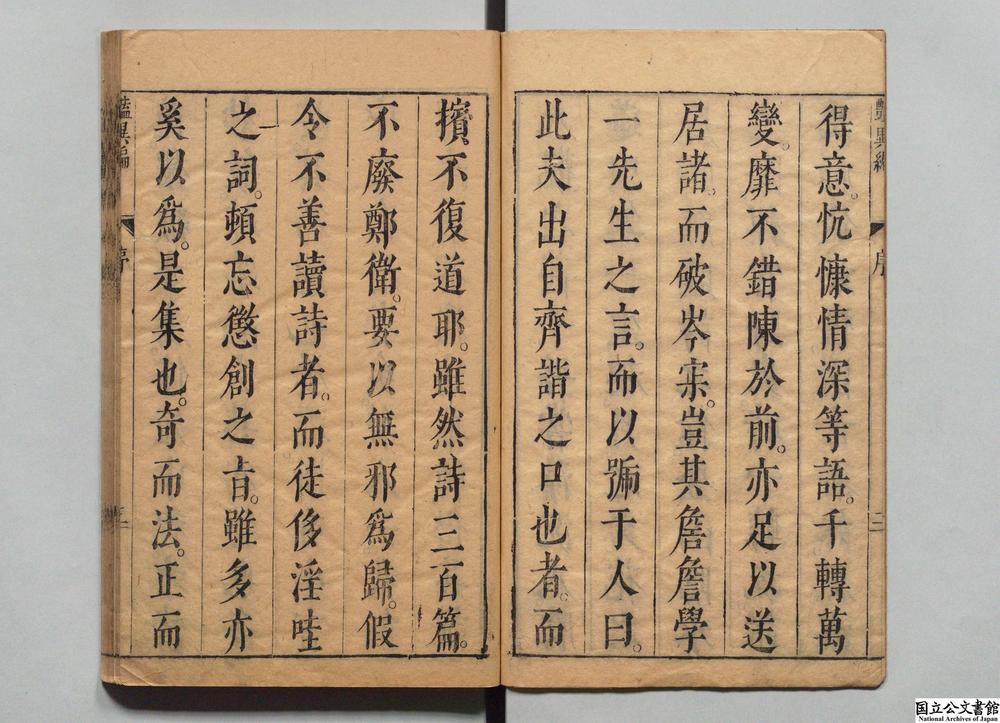 得意。忼慷情深等語。千轉萬
變。靡不錯陳於前。亦足以送
居諸。而破岑寀。豈其詹詹學
一先生之言。而以號于人曰。
此夫出自齊諧之口也者。而
擯不復道耶。雖然詩三百篇。
不廢鄭衛。要以無邪爲歸。假
令不善讀詩者。而徒侈淫哇
之詞。頓忘懲創之旨。雖多亦
奚以爲。是集也。奇而法。正而
序
三
国立公文書館
National Archives of Japan